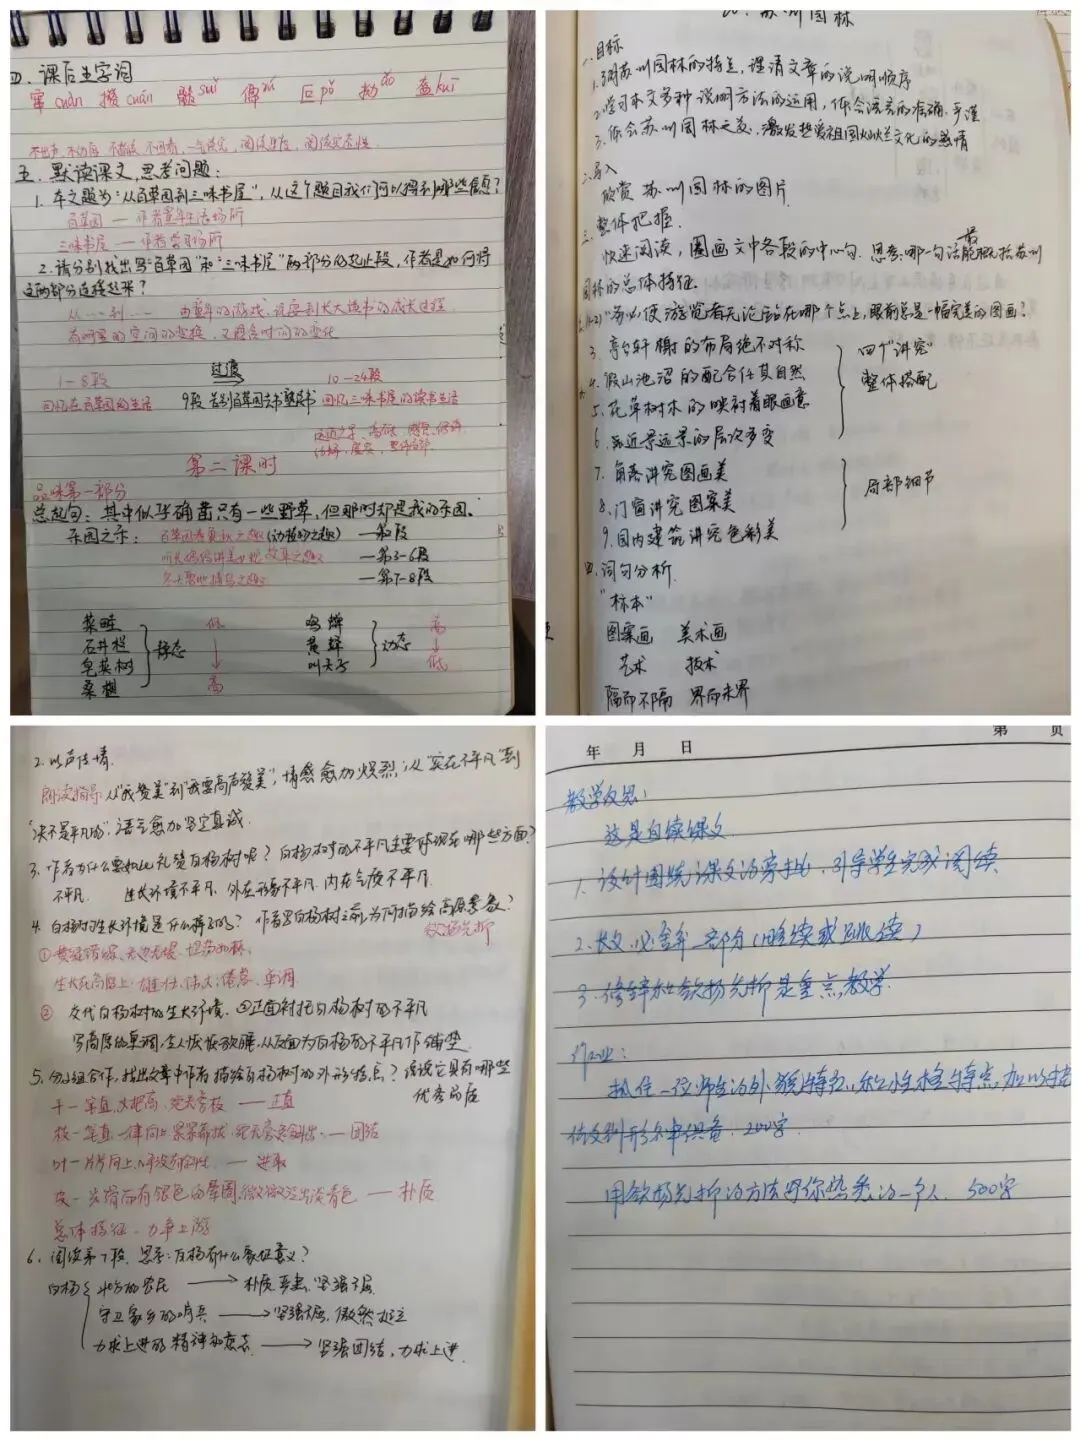 四、课后生字词
窜 cuán 撺 cuān 髓 suǐ 傅 叵 pǒ 拗 ǎo 盔 kuī
五、默读课文，思考问题：
1. 本文题为"从百草园到三味书屋"，从这个题目我们可以得到哪些信息？
百草园 — 作者童年生活场所
三味书屋 — 作者学习场所
2. 请分别找出写"百草园"和"三味书屋"两部分的起止段，作者是如何将
这两部分连接起来？
从……到…… 由童年的游戏、
有明显的空间的变换，又隐含时间的变化
1-8段 过渡 10-24段
回忆在百草园的生活 9段 告别百草园去书塾读书 回忆三味书屋的读书生活
第二课时
品味第一部分
总起句：其中似乎确凿只有一些野草，但那时却是我的乐园。
乐园之乐： — 第2段
— 第3-6段
— 第7-8段
菜畦 低 鸣蝉 高
石井栏 静态 ↓ 黄蜂 动态 ↓
皂荚树 叫天子 低
桑椹 高
苏州园林
一、目标
1. 苏州园林的特点，理清文章的说明顺序
2. 学习本文多种说明方法的运用，体会语言的准确、严谨
3. 体会苏州园林之美，激发热爱祖国灿烂文化的感情
二、导入
欣赏苏州园林的图片
三、整体把握
快速阅读，圈画文中各段的中心句。思考：哪一句话最能概括苏州
园林的总体特征。
务必使游览者无论站在哪个点上，眼前总是一幅完美的图画？
3. 亭台轩榭的布局绝不对称
4. 假山池沼的配合任其自然
5. 花草树木的映衬着眼画意
6. 近景远景的层次多变
四个"讲究"
整体搭配
7. 角落讲究图画美
8. 门窗讲究图案美
9. 园内建筑讲究色彩美
局部细节
四、词句分析
"标本"
图案画 美术画
艺术 技术
隔而不隔 界而未界
2. 以声传情
朗读指导：从"我赞美"到"我要高声赞美"，情感愈加炽烈；从"实在不平凡"到
"决不是平凡的"，语气愈加坚定真诚
3. 作者为什么要如此礼赞白杨树呢？白杨树的不平凡主要体现在哪些方面？
不平凡 生长环境不平凡、外在形象不平凡、内在气质不平凡
4. 白杨树的生长环境是什么样子的？作者写白杨树之前为何描绘高原景象？
欲扬先抑
① 黄绿错综、无边无垠、坦荡如砥
生长在高原上：雄壮、伟大；倦怠、单调
② 交代白杨树的生长环境。②正面衬托白杨树的不平凡
写高原的单调，令人恹恹欲睡，从反面为白杨的不平凡作铺垫
5. 分小组合作，找出文章中作者描绘白杨树的外形特点？谈谈它具有哪些
优秀品质
干—笔直、丈把高、绝无旁枝 — 正直
枝—笔直、一律向上、紧紧靠拢、绝无旁逸斜出 — 团结
叶—片片向上、几乎没有斜生 — 进取
皮—光滑而有银色的晕圈、微微泛出淡青色 — 朴质
总体特征：力争上游
6. 阅读第7段，思考：白杨有什么象征意义？
白杨 北方的农民 → 朴质、严肃、坚强不屈
守卫家乡的哨兵 → 坚强不屈、傲然挺立
力求上进的精神和意志 → 坚强团结，力求上进
年 月 日 第 页
教学反思：
这是自读课文
1. 设计围绕课文的旁批，引导学生完成阅读
2. 长文，必舍弃一部分（略读或跳读）
3. 修辞和欲扬先抑是重点教学
作业：
抓住一位师生的外貌特征和性格特点，加以描
200字
用欲扬先抑的方法写你熟悉的一个人 500字